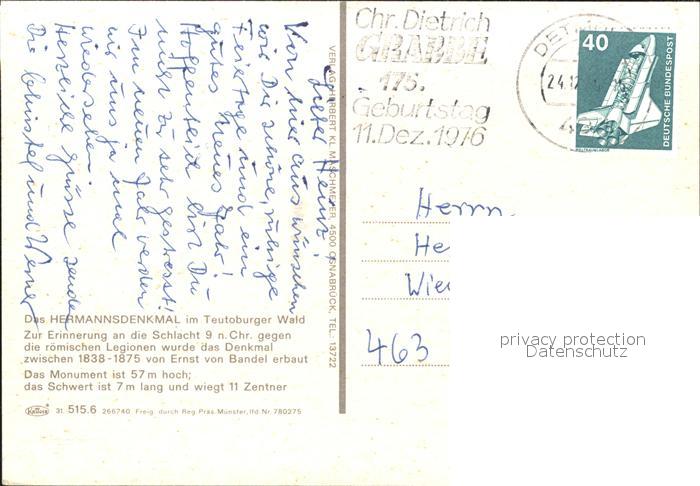 Lieber Heinz!
Von hier aus wünschen
wir Dir schöne, ruhige
Feiertage und ein
gutes neues Jahr!
Hoffentlich bist Du
nicht zu sehr gestresst!
Im neuen Jahr werden
wir uns ja mal
wiedersehen.
Herzliche Grüsse senden
Die und Werner
Das HERMANNSDENKMAL im Teutoburger Wald
Zur Erinnerung an die Schlacht 9 n. Chr. gegen
die römischen Legionen wurde das Denkmal
zwischen 1838-1875 von Ernst von Bandel erbaut
Das Monument ist 57 m hoch;
das Schwert ist 7 m lang und wiegt 11 Zentner
Kruger 31 515.6 266740 Freig. durch Reg. Präs. Münster, lfd Nr. 780275
VERLAG HERBERT KL. MASCHMEYER, 4500 OSNABRÜCK, TEL. 13722
Chr. Dietrich
GRABBE
175.
Geburtstag
11. Dez. 1976
DETM
24.12
40
DEUTSCHE BUNDESPOST
WELTRAUMLABOR
Herrn
He
Wie
463
privacy protection
Datenschutz